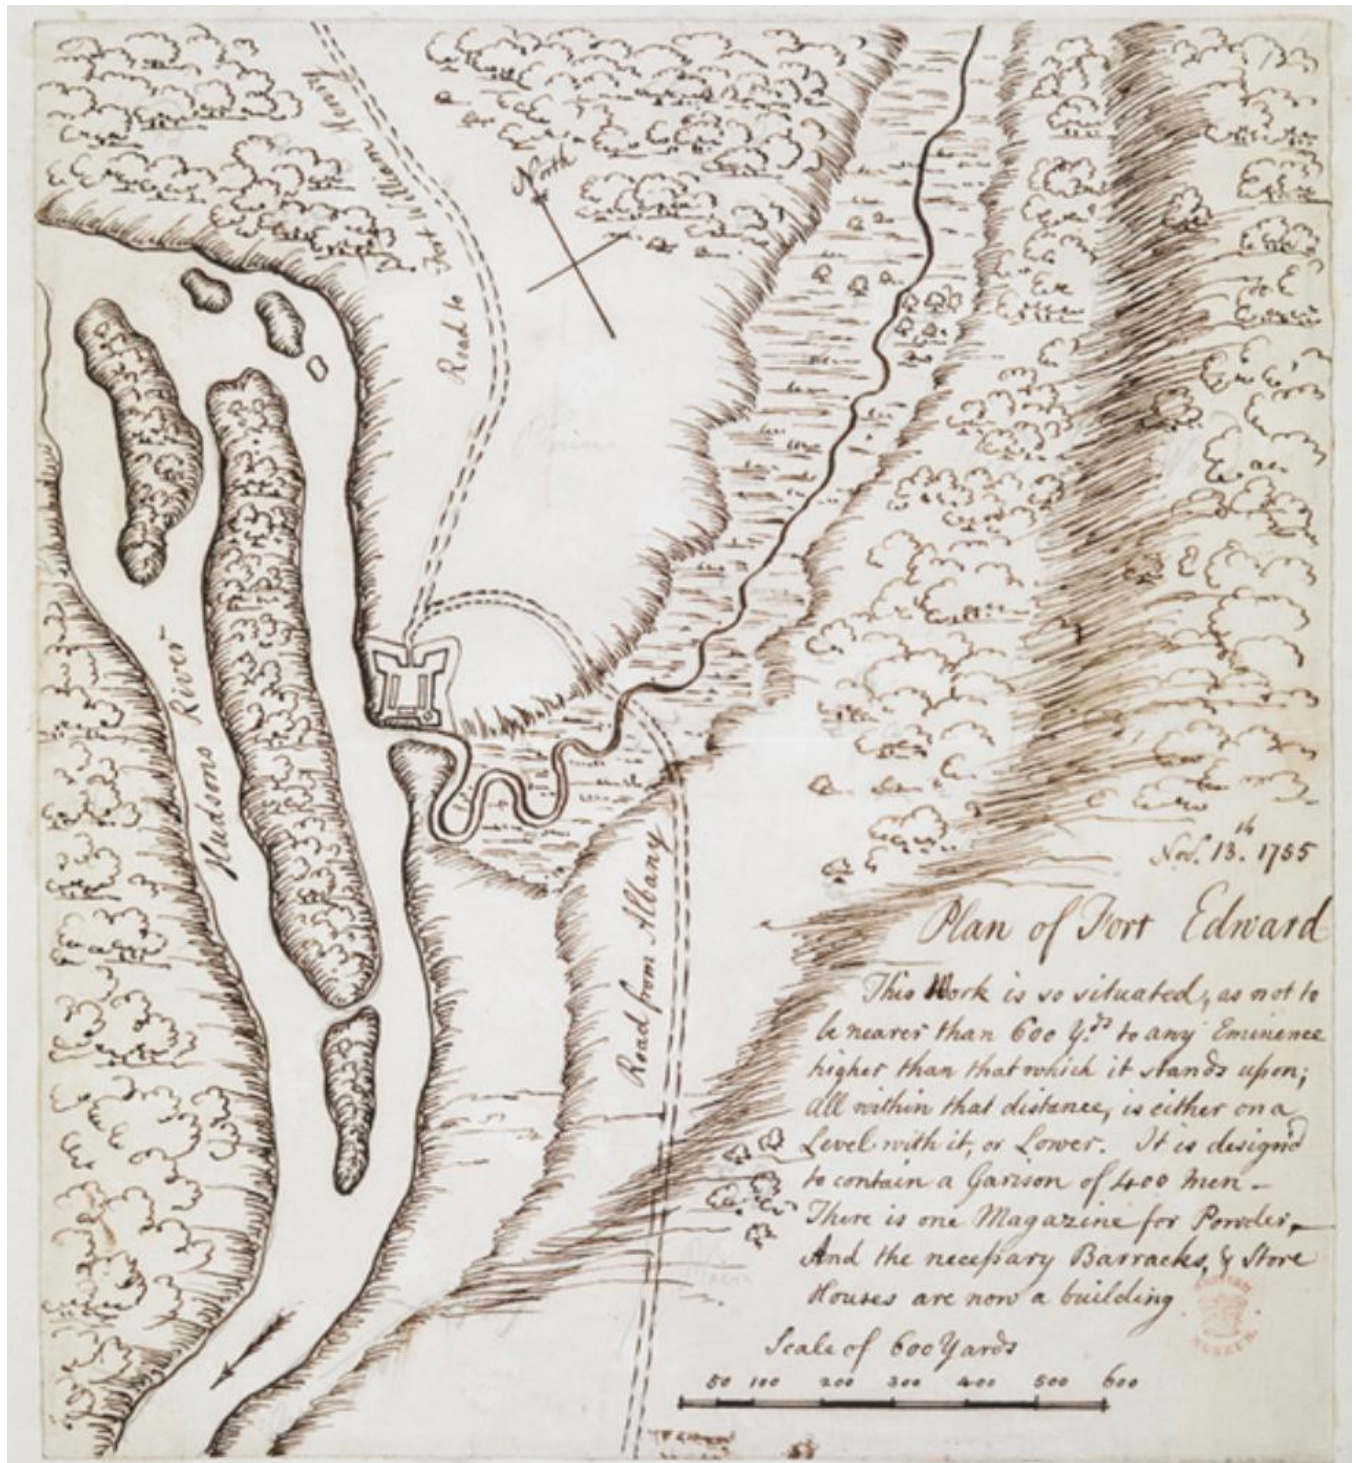 Road to Fort William Henry
North
Hudsons River
Road from Albany
Nov. 13.th 1755
Plan of Fort Edward
This Work is so situated, as not to
be nearer than 600 Y.ds to any Eminence
higher than that which it stands upon;
all within that distance, is either on a
Level with it, or Lower. It is design'd
to contain a Garison of 400 Men -
There is one Magazine for Powder,
And the necessary Barracks, & Store
Houses are now a building
Scale of 600 Yards
50 100 200 300 400 500 600